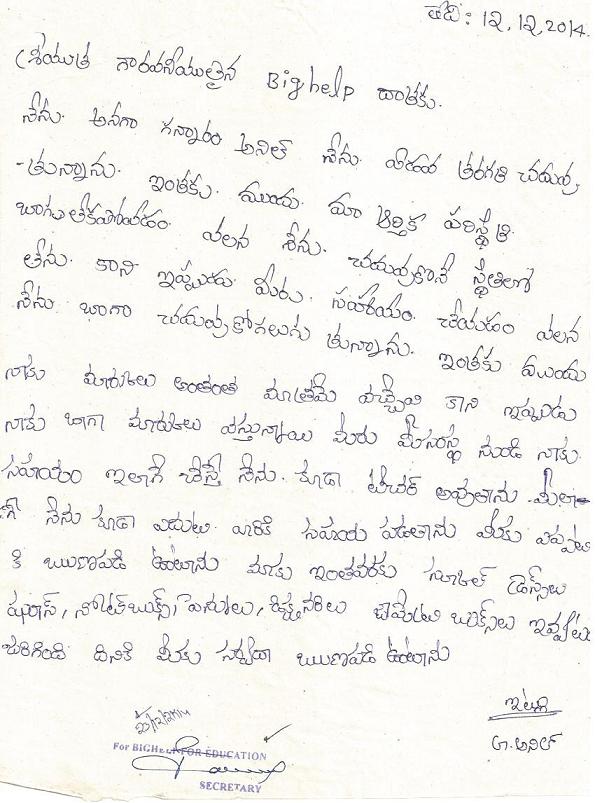 తేది: 12.12.2014.
శ్రీయుత గౌరవనీయుత్తైన Bighelp దాతకు.
నేను. అనగా గన్నారం అనిల్ నేను. పదవ తరగతి చదువు
-తున్నాను. ఇంతకు. ముందు. మా ఆర్థిక పరిస్థితి
బాగులేకపోవడం. వలన నేను. చదువుకొనే స్థితిలో
లేను. కాని ఇప్పుడు. మీరు. సహాయం. చేయడం వలన
నేను బాగా చదువుకోగలుగు తున్నాను. ఇంతకు ముందు
నాకు మార్కులు అంతంత మాత్రమే వచ్చేవి కాని ఇప్పుడు
నాకు బాగా మార్కులు వస్తున్నాయి మీరు మీసంస్థ నుండి నాకు
సహాయం ఇలాగే చేస్తే నేను. కూడా టీచర్ అవుతాను మీలా
గే నేను కూడా పదుట. వారికి సహాయ పడతాను మీకు ఎప్పటి
కి ఋణపడి ఉంటాను మాకు ఇంతవరకు స్కూల్ డ్రెస్స్‌లు
షూస్, నోట్‌బుక్స్, పెన్నులు, డిక్ష్నరీలు టెమేటు బుక్స్‌లు ఇవ్వటం
జరిగింది దినికి మీకు సర్వదా ఋణపడి ఉంటాను
ఇట్లు
G.అనిల్
For BIGHELP FOR EDUCATION
SECRETARY